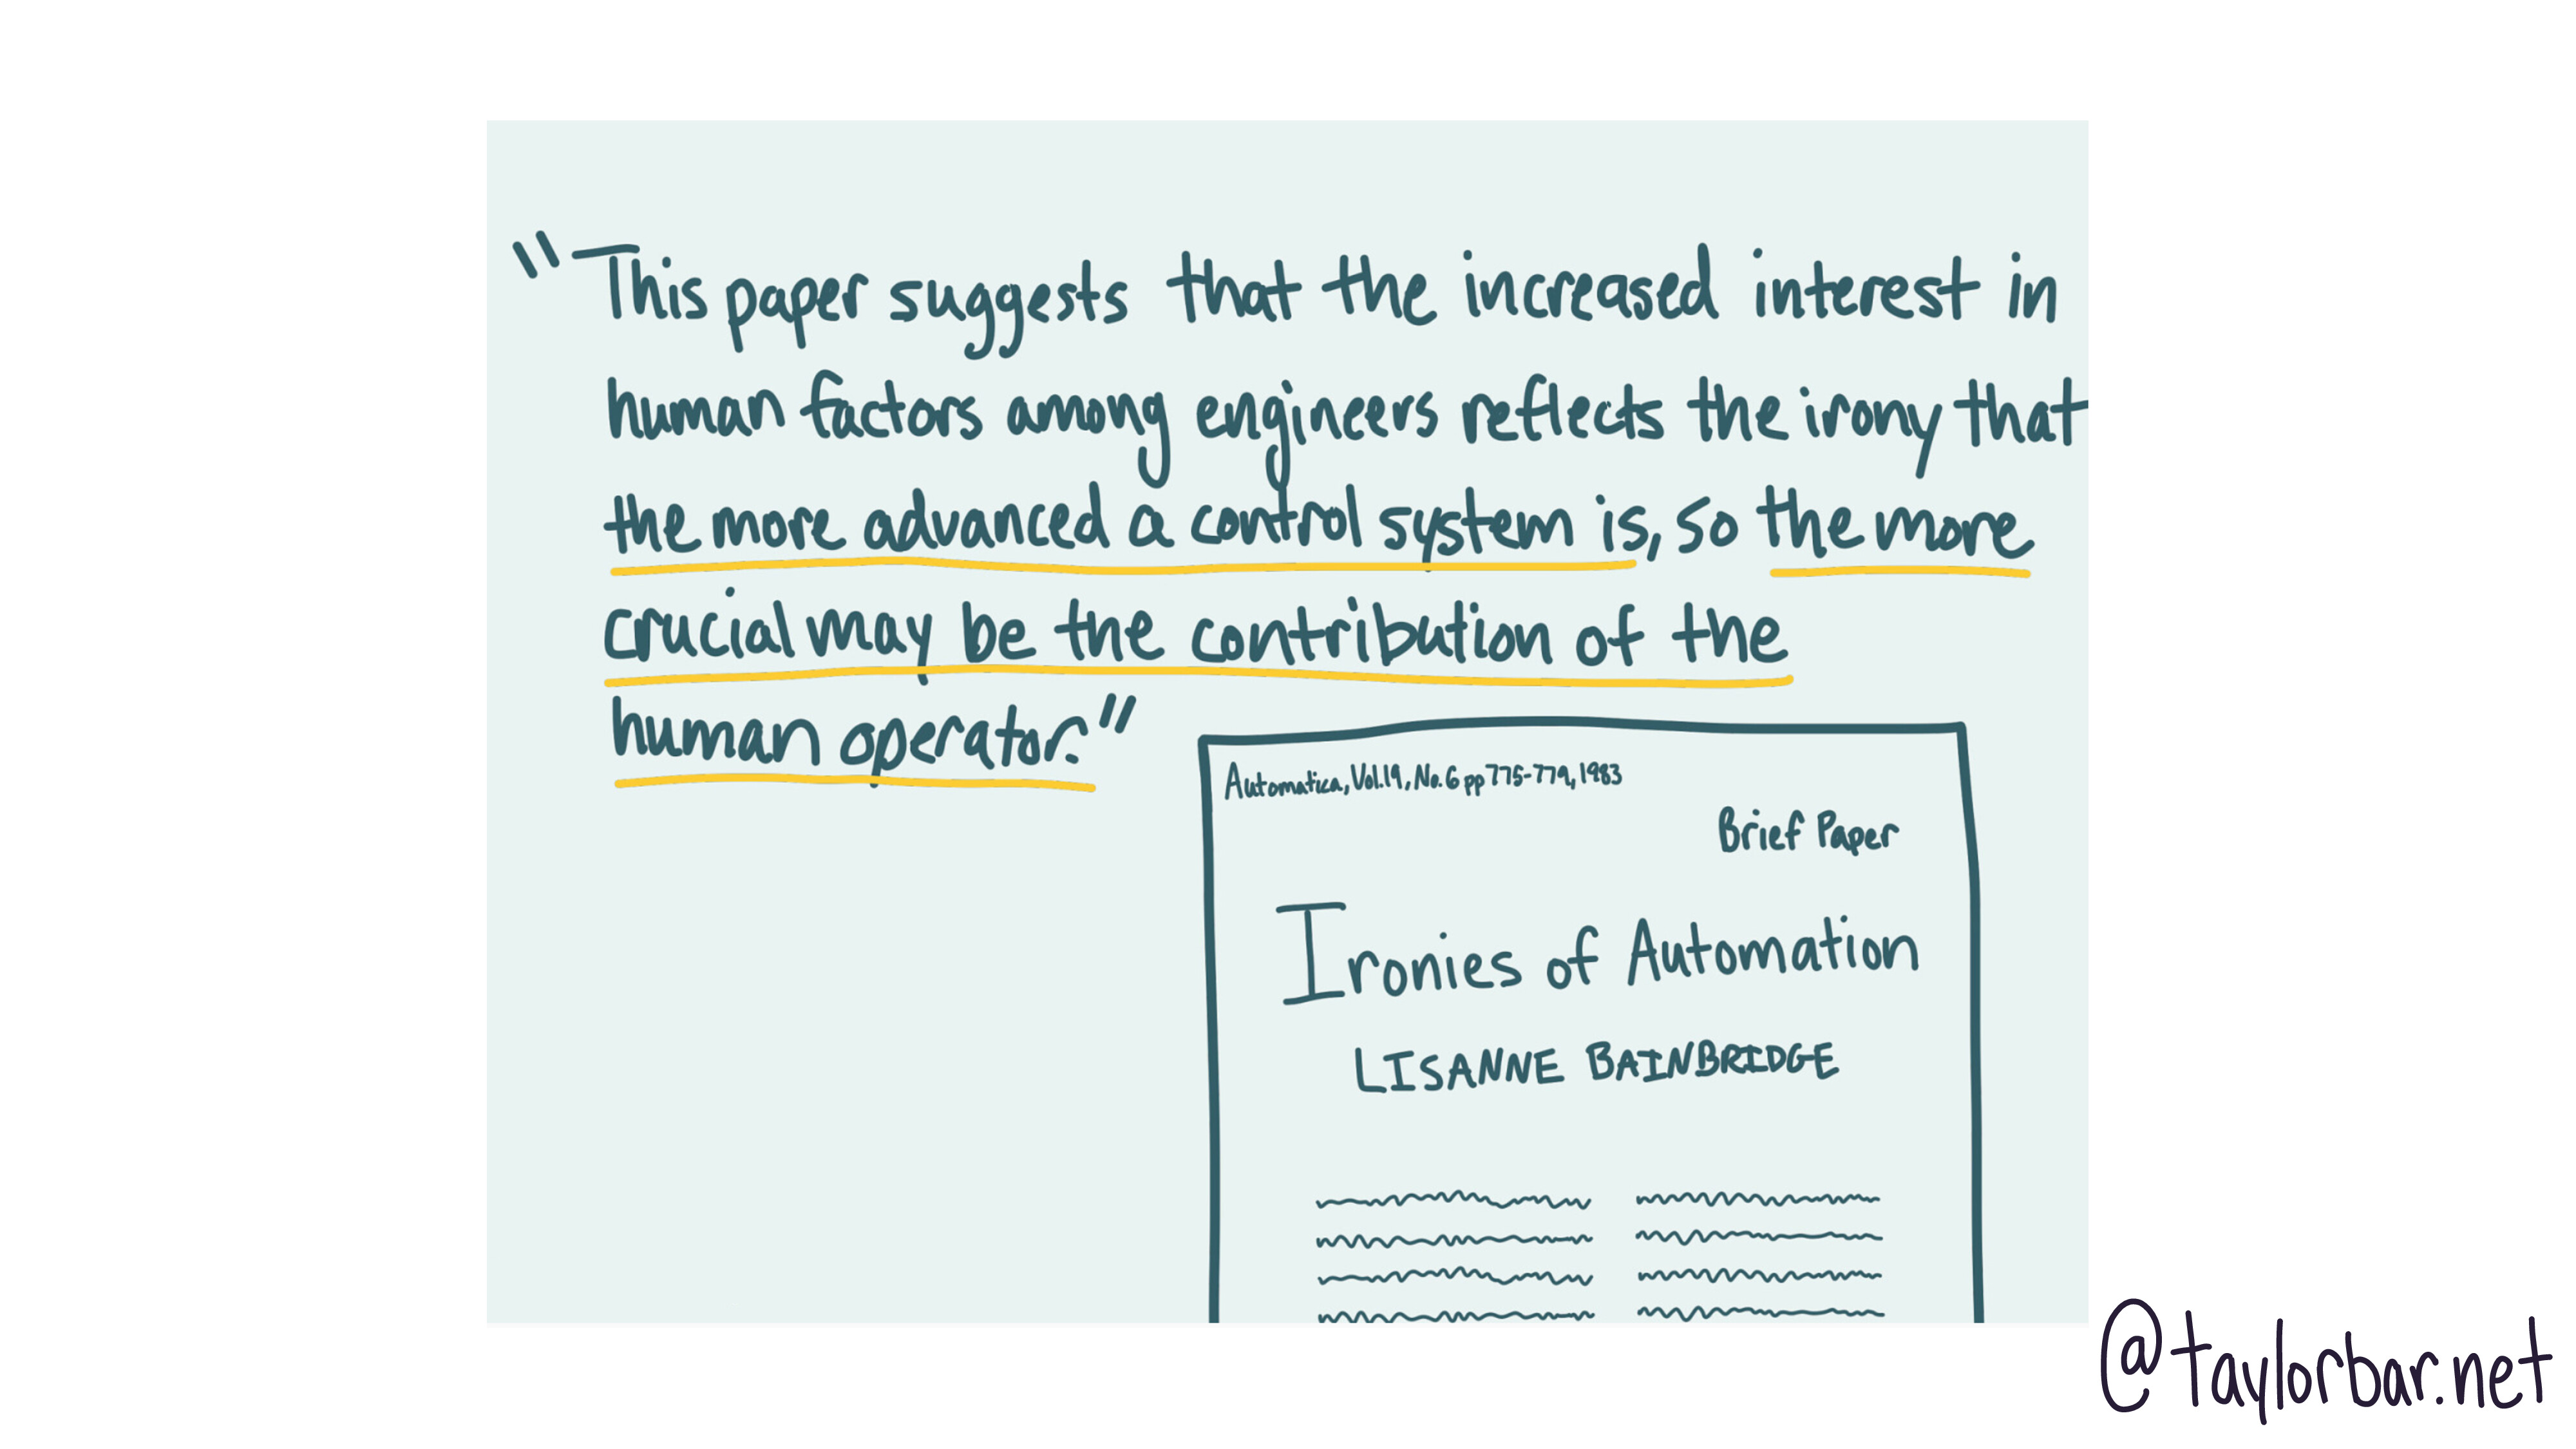 "This paper suggests that the increased interest in
human factors among engineers reflects the irony that
the more advanced a control system is, so the more
crucial may be the contribution of the
human operator."
Automatica, Vol.19, No.6 pp 775-779, 1983
Brief Paper
Ironies of Automation
LISANNE BAINBRIDGE
@taylorbar.net